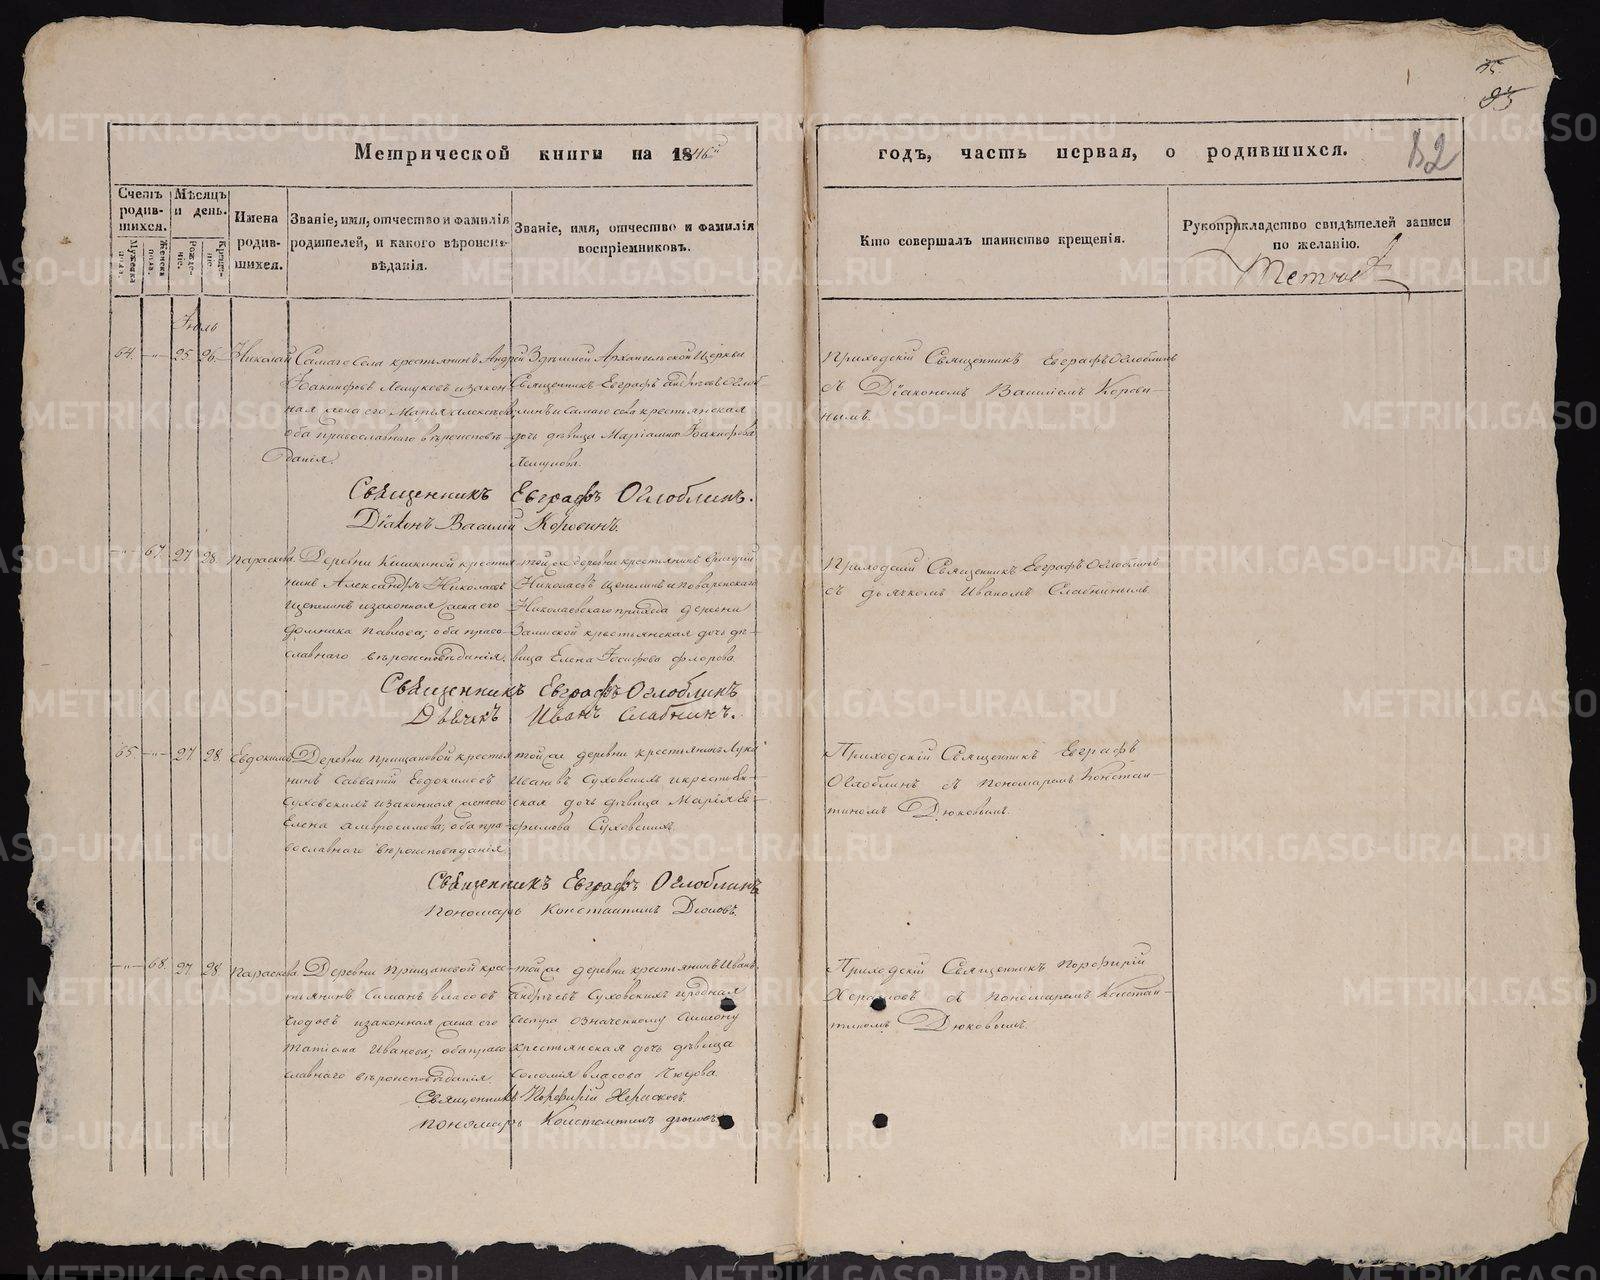 Метрической книги на 1846й
годъ, часть первая, о родившихся.
93
82
Счетъ родив-шихся.
Мужеска пола.
Женска пола.
Мѣсяцъ и день.
Рожде-нiе.
Креще-нiе.
Имена родив-шихся.
Званiе, имя, отчество и фамилiя
родителей, и какого вѣроиспо-
вѣданiя.
Званiе, имя, отчество и фамилiя
воспрiемниковъ.
Кто совершалъ таинство крещенiя.
Рукоприкладство свидѣтелей записи
по желанiю.
Iюль
64. —"— 25 26. Николай
Самаго Села крестьянинъ Андрей
Iакинфовъ и закон-
ная жена его Марiя
оба православнаго вѣроисповѣ-
данiя.
Здѣшной Архангельской Церкви
Священникъ Евграфъ Андреевъ Оглоб-
линъ и Самаго села крестьянская
дочь дѣвица Марiамна Iакинфова
Приходскiй Священникъ Евграфъ Оглоблинъ
съ Дiакономъ Василiемъ Корови-
нымъ.
Священникъ Евграфъ Оглоблинъ.
Дiаконъ Василiй Коровинъ.
—"— 67. 27 28. Параскева.
Деревни Кишкиной крестья-
нинъ Александръ Николаевъ
Щепинъ и законная жена его
Домника Павлова; оба право-
славнаго вѣроисповѣданiя.
той же деревни крестьянинъ Григорiй
Николаевъ и Поваренскаго
Николаевскаго прихода деревни
крестьянская дочь дѣ-
вица Елена Iосифова Флорова.
Приходскiй Священникъ Евграфъ Оглоблинъ
съ дьячкомъ Иваномъ Слабнинымъ
Священникъ Евграфъ Оглоблинъ
Дьячекъ Иванъ Слабнинъ.
65 —"— 27 28 Евдокимъ
Деревни Прищановой крестья-
нинъ Савватiй Евдокимовъ
Суховскихъ и законная жена его
Елена Амвросимова; оба пра-
вославнаго вѣроисповѣданiя
той же деревни крестьянинъ Лука
Ивановъ Суховскихъ и крестьян-
ская дочь дѣвица Марiя Ев-
фимова Суховскихъ
Приходскiй Священникъ Евграфъ
Оглоблинъ съ пономаремъ Констан-
тиномъ Дюковымъ.
Священникъ Евграфъ Оглоблинъ
Пономарь Константинъ Дюковъ.
—"— 68. 27. 28. Параскева.
Деревни Прищановой крес-
тьянинъ Симанъ Власовъ
и законная жена его
Татiана Иванова; оба право-
славнаго вѣроисповѣданiя.
той же деревни крестьянинъ Иванъ
Андреевъ Суховскихъ и родная
сестра означенному Симону
крестьянская дочь дѣвица
Соломiя Власова
Приходскiй Священникъ Порфирiй
съ пономаремъ Констан-
тиномъ Дюковымъ.
Священникъ Порфирiй
Пономарь Константинъ Дюковъ.
METRIKI.GASO-URAL.RU